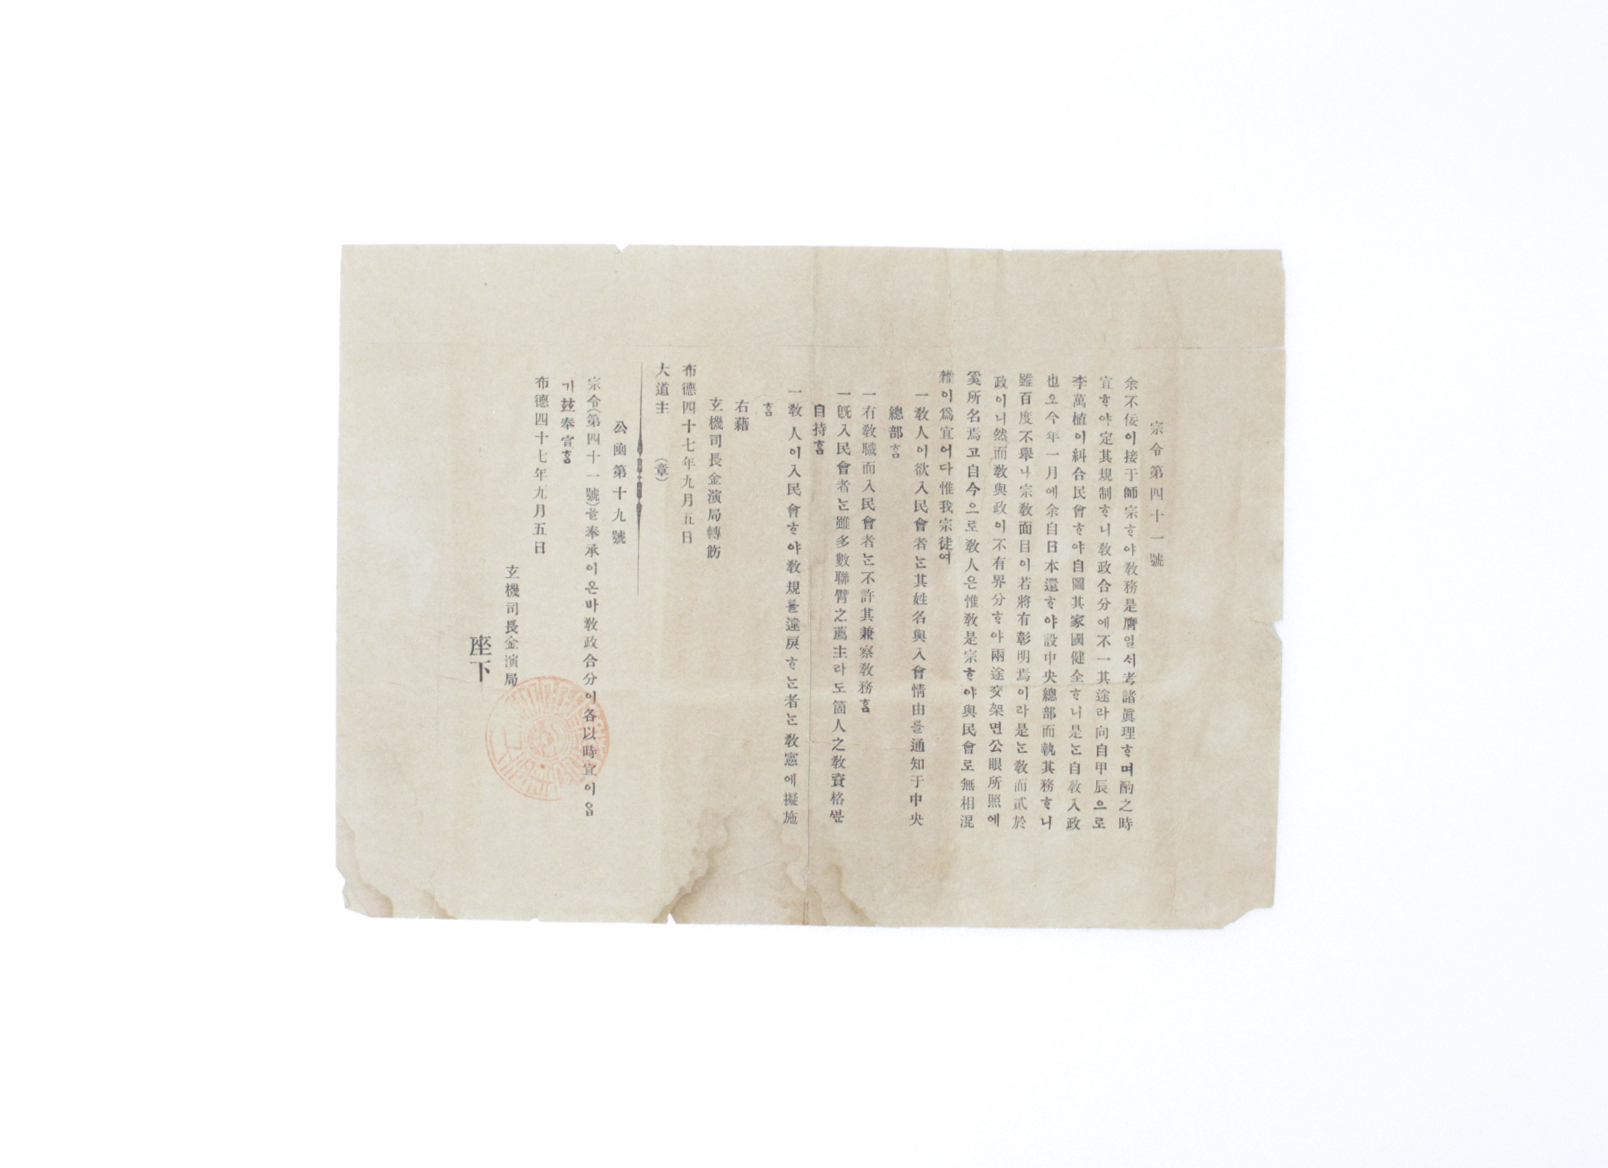 宗令第四十一號
余不佞이接于師宗ᄒᆞ야敎務是膺일ᄉᆡ考諸眞理ᄒᆞ며酌之時
宜ᄒᆞ야定其規制ᄒᆞ니敎政合分에不一其途라向自甲辰으로
李萬植이糾合民會ᄒᆞ야自圖其家國健全ᄒᆞ니是ᄂᆞᆫ自敎入政
也오今年一月에余自日本還ᄒᆞ야設中央總部而執其務ᄒᆞ니
雖百度不擧나宗敎面目이若將有彰明焉이라是ᄂᆞᆫ敎而貳於
政이니然而敎與政이不有界分ᄒᆞ야兩途交架면公眼所照에
奚所名焉고自今으로敎人은惟敎是宗ᄒᆞ야與民會로無相混
雜이爲宜어다惟我宗徒여
一敎人이欲入民會者ᄂᆞᆫ其姓名與入會情由를通知于中央
總部홈
一有敎職而入民會者ᄂᆞᆫ不許其兼察敎務홈
一旣入民會者ᄂᆞᆫ雖多數聯臂之薦主라도箇人之敎資格만
自持홈
一敎人이入民會ᄒᆞ야敎規를違戾ᄒᆞᄂᆞᆫ者ᄂᆞᆫ敎憲에擬施
홈
右藉
玄機司長金演局轉飭
布德四十七年九月五日
大道主 (章)
公函第十九號
宗令(第四十一號)을奉承이온바敎政合分이各以時宜이옵
기玆奉宣홈
布德四十七年九月五日
玄機司長金演局
座下